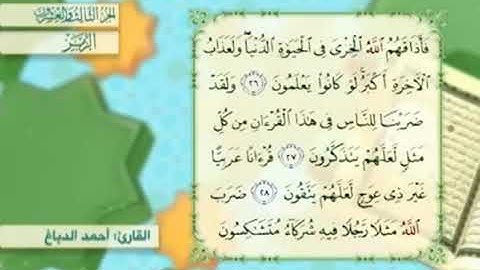 الجزء الثالث والعشرون
الزمر
فَأَذَاقَهُمُ اللَّهُ الْخِزْىَ فِى الْحَيَوٰةِ الدُّنْيَا ۖ وَلَعَذَابُ
الْآخِرَةِ أَكْبَرُ ۚ لَوْ كَانُوا۟ يَعْلَمُونَ ٢٦ وَلَقَدْ
ضَرَبْنَا لِلنَّاسِ فِى هَٰذَا الْقُرْءَانِ مِن كُلِّ
مَثَلٍ لَّعَلَّهُمْ يَتَذَكَّرُونَ ٢٧ قُرْءَانًا عَرَبِيًّا
غَيْرَ ذِى عِوَجٍ لَّعَلَّهُمْ يَتَّقُونَ ٢٨ ضَرَبَ
اللَّهُ مَثَلًا رَّجُلًا فِيهِ شُرَكَاءُ مُتَشَٰكِسُونَ
القارئ: أحمد الدباغ